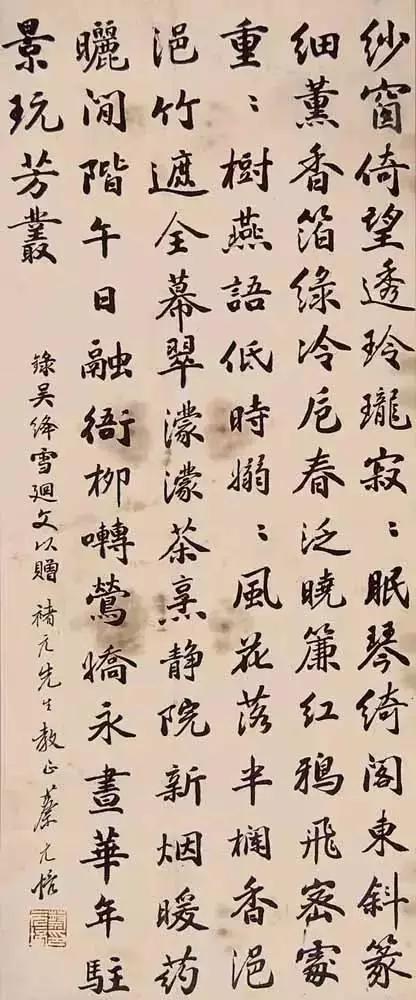 紗窗倚望透玲瓏寂〻眠琴綺閣東斜篆
細薰香箔綠冷卮春泛曉簾紅鴉飛密處
重〻樹燕語低時嫋〻風花落半欄香浥
浥竹遮全幕翠濛濛茶烹静院新烟暖药
曬閒階午日融衙柳囀鶯嬌永晝華年駐
景玩芳叢
錄吴絳雪廻文以贈 先生教正 蔡元培